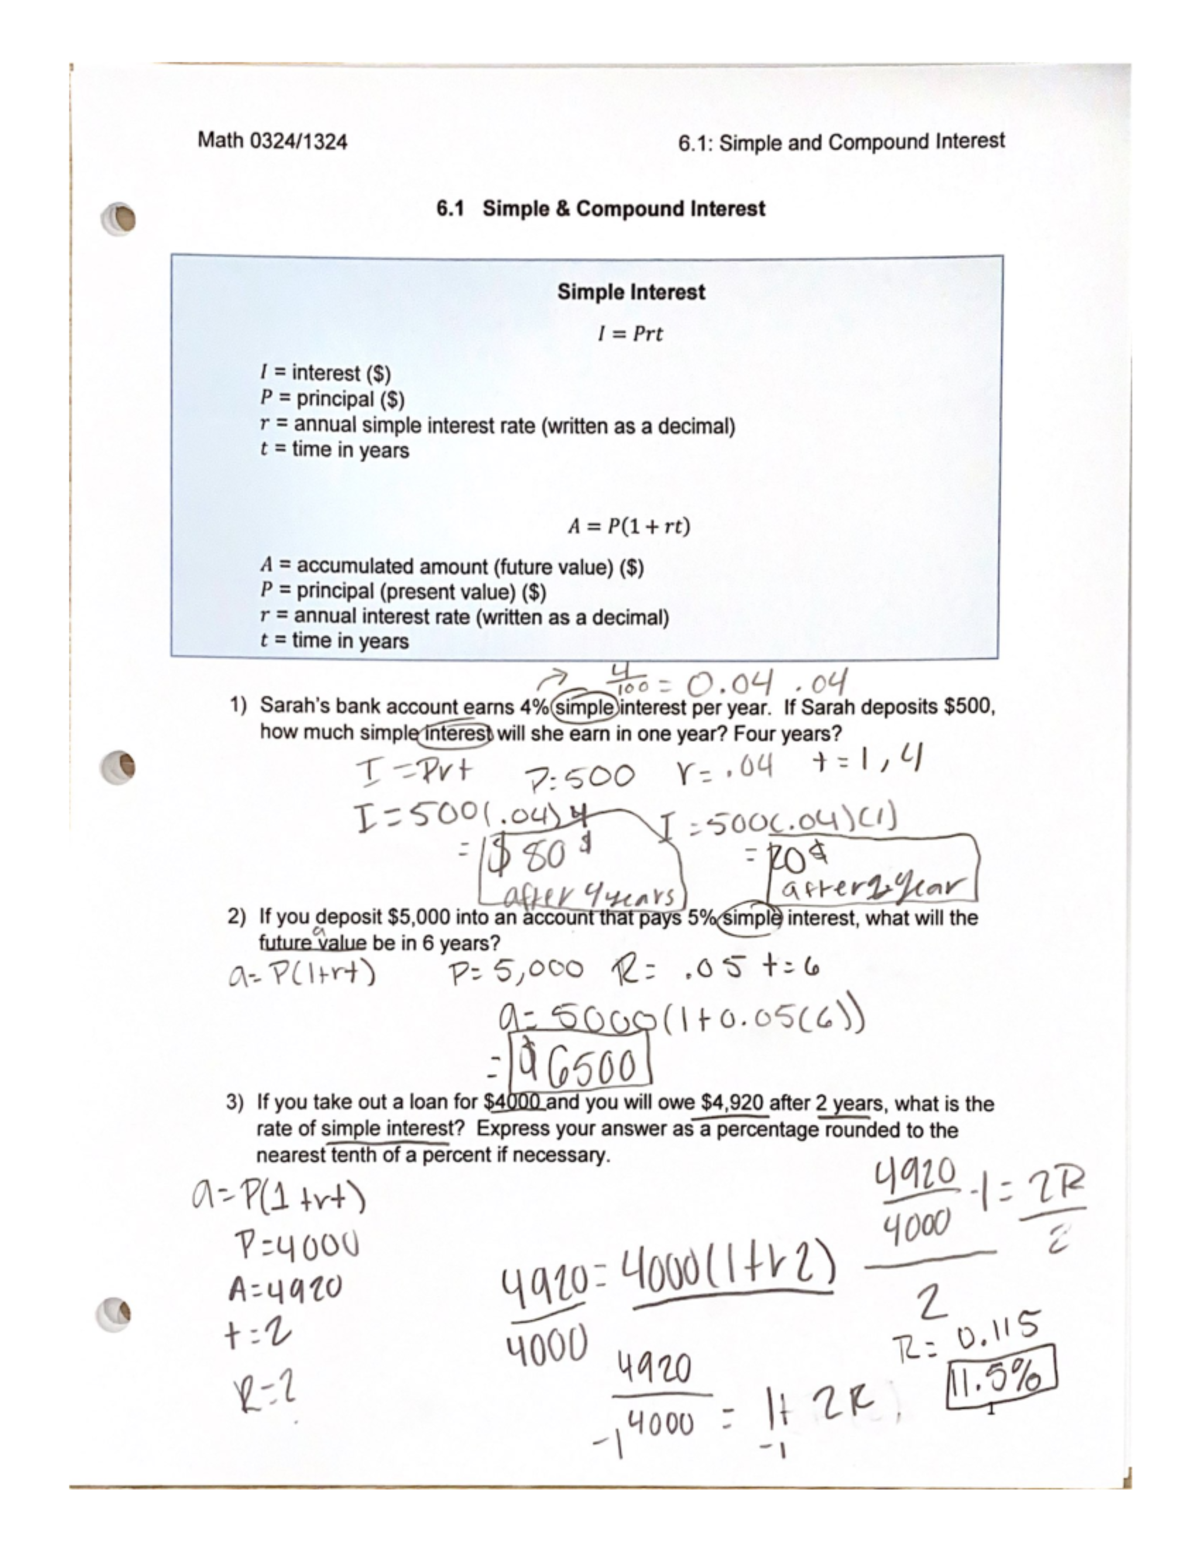 Math 0324/1324
6.1: Simple and Compound Interest
6.1 Simple & Compound Interest
Simple Interest
I = Prt
I = interest ($)
P = principal ($)
r = annual simple interest rate (written as a decimal)
t = time in years
A = P(1 + rt)
A = accumulated amount (future value) ($)
P = principal (present value) ($)
r = annual interest rate (written as a decimal)
t = time in years
4/100 = 0.04 .04
1) Sarah's bank account earns 4% simple interest per year. If Sarah deposits $500,
how much simple interest will she earn in one year? Four years?
I = Prt P: 500 r = .04 t = 1, 4
I = 500(.04)4 I = 500(.04)(1)
= $80 $ = 20$
after 4 years after year
2) If you deposit $5,000 into an account that pays 5% simple interest, what will the
a
future value be in 6 years?
a = P(1+rt) P = 5,000 R = .05 t = 6
a = 5000(1+0.05(6))
= $6500
3) If you take out a loan for $4000 and you will owe $4,920 after 2 years, what is the
rate of simple interest? Express your answer as a percentage rounded to the
nearest tenth of a percent if necessary.
a = P(1+rt)
P = 4000
A = 4920
t = 2
R = ?
4920 = 4000(1+r2)
4000
4920
4000 = 1 + 2R
-1 -1
4920
4000 -1 = 2R
2
2
R = 0.115
11.5%